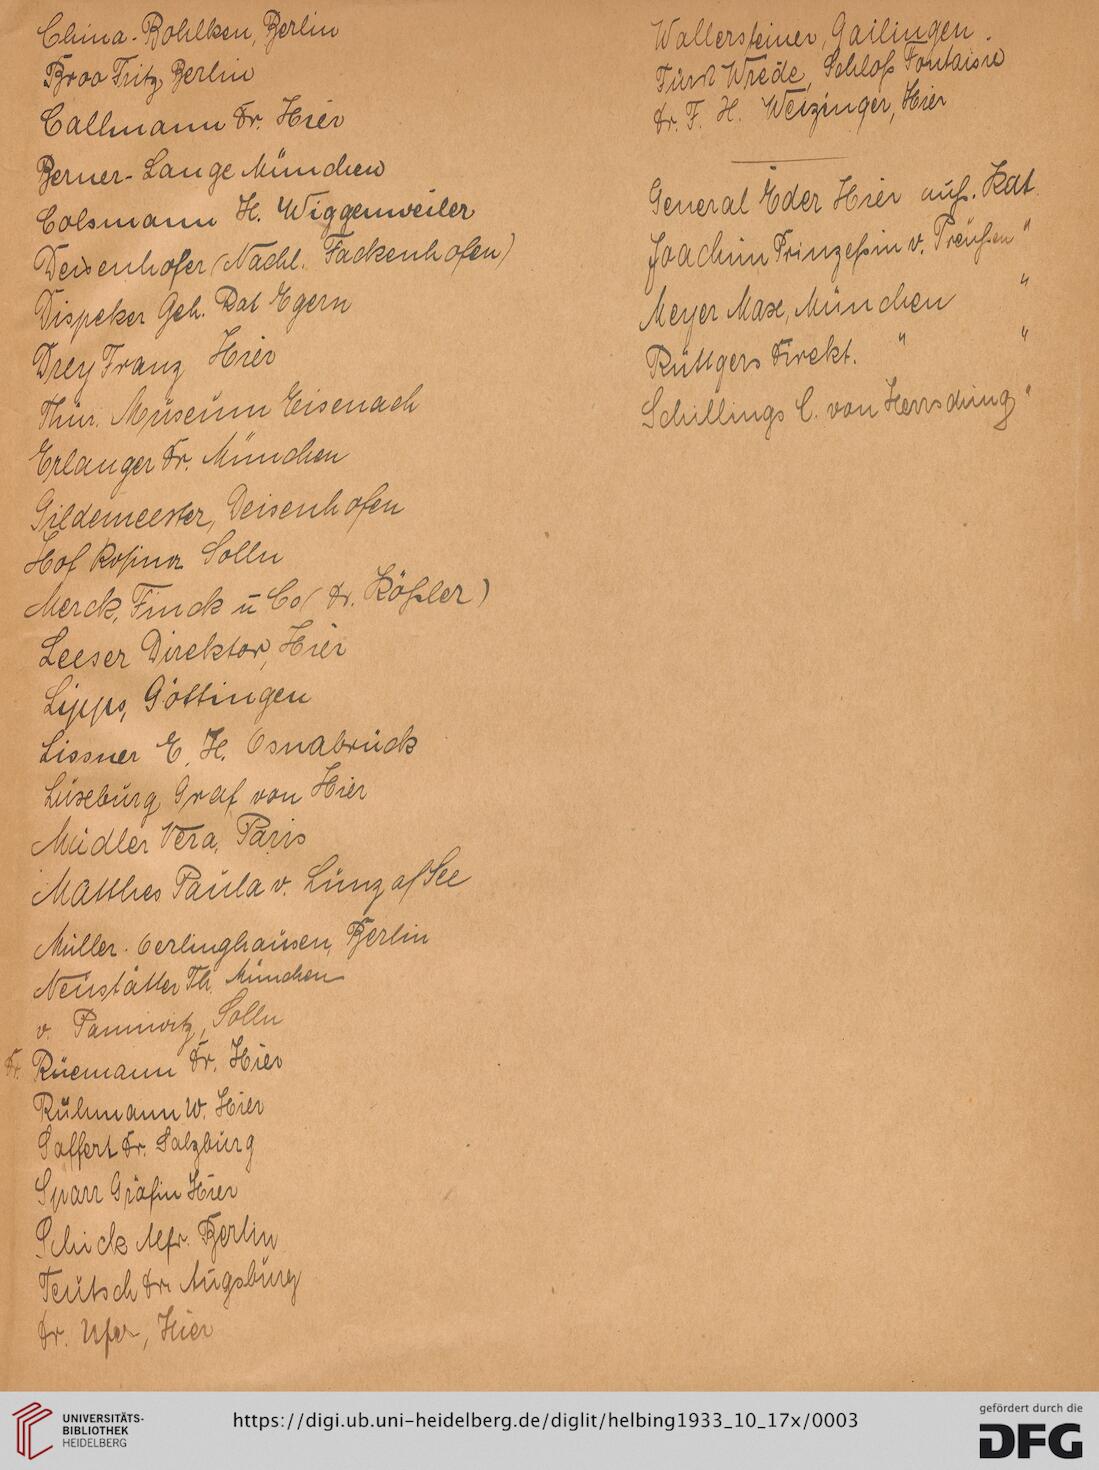 China-Bohlken, Berlin
Broo Fritz, Berlin
Callmann Dr. Hier
Berner-Lange München
Colsmann H. Wiggenweiler
Deisenhofer (Nachl. Fackenhofen)
Dispeker Geh. Rat Egern
Drey Franz Hier
Thür. Museum Eisenach
Erlanger Dr. München
Gildemeester, Deisenhofen
Hof Rosina Solln
Merck, Finck u Co (Dr. Kößler)
Leeser Direktor, Hier
Lipps, Göttingen
Lissner E. H. Osnabrück
Luxeburg Graf von Hier
Mudler Vera, Paris
Matthes Paula v. Lunz a/See
Müller-Oerlinghausen, Berlin
Neustätter Th. München
v. Pannwitz, Solln
Dr. Rüemann Dr. Hier
Rühmann W. Hier
Saffert Dr. Salzburg
Sparr Gräfin Hier
Schick Alfr. Berlin
Teutsch Dr. Augsburg
Dr. Hier
Wallersteiner, Gailingen.
Fürst Wrede, Schloß Fontaisie
Dr. F. H. Weizinger, Hier
General Eder Hier auß. Kat.
Joachim Prinzessin v. Preußen "
Meyer Max, München "
Rüttgers Direkt. " "
Schillings C. von Herrsching "
UNIVERSITÄTS-
BIBLIOTHEK
HEIDELBERG
https://digi.ub.uni-heidelberg.de/diglit/helbing1933_10_17x/0003
gefördert durch die
DFG